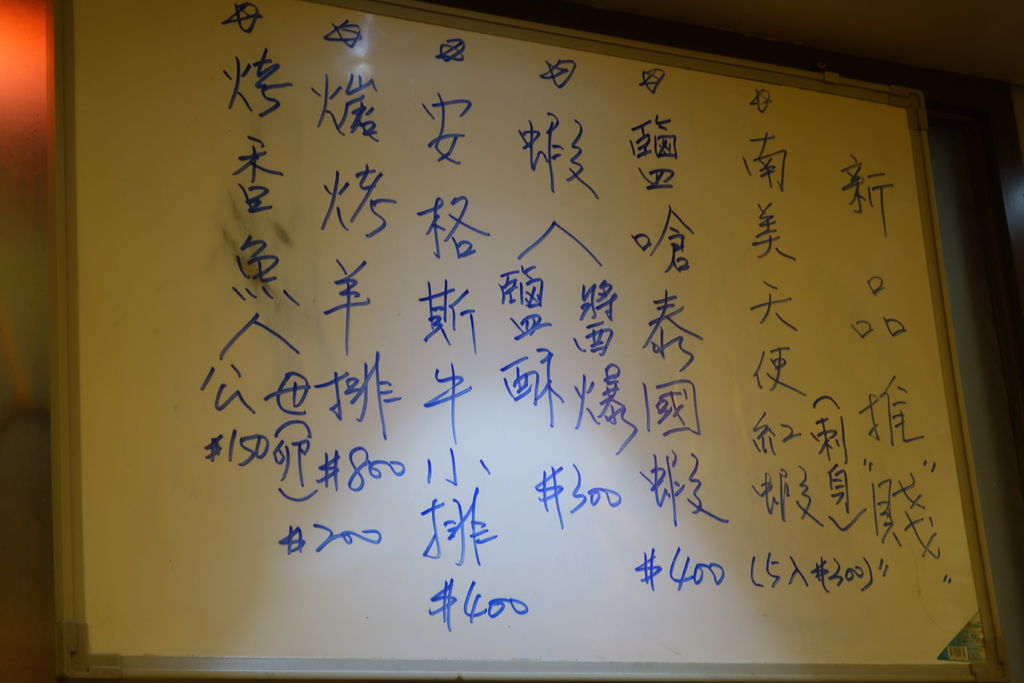 新品推"賤"
南美天使紅蝦(刺身)
(5入#300)
鹽嗆泰國蝦
#400
蝦
醬爆
鹽酥
#300
安格斯牛小排
#400
烤羊排
#800
烤香魚
母(卵)
#200
公
#150